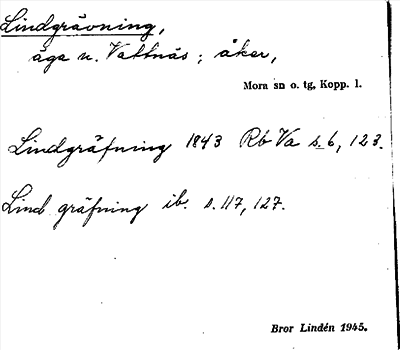 Lindgrävning,
äga n. Vattnäs; åker,
Mora sn o. tg, Kopp. l.
Lindgräfning 1843 Rb Va s. 6, 123.
Lind gräfning ib. s. 117, 127.
Bror Lindén 1945.